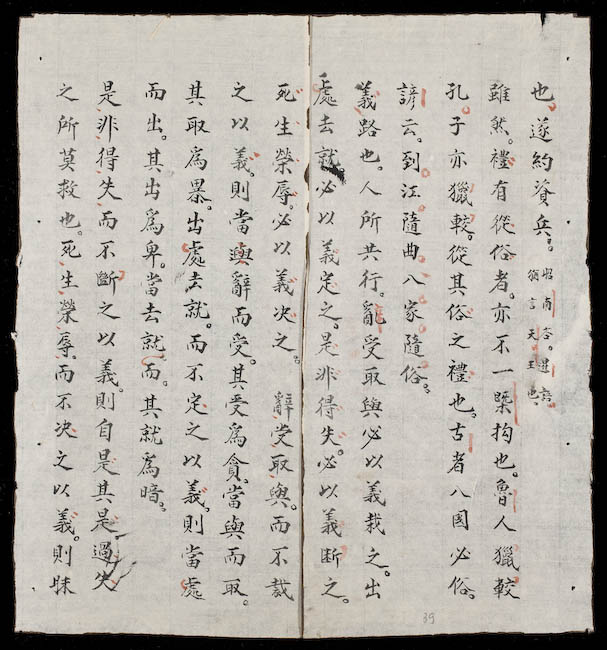 也。遂約資兵。
南
猶言天王也
雖然。禮有從俗者。亦不一槩拘也。魯人獵較
孔子亦獵較。從其俗之禮也。古者入國必俗。
諺云。到江隨曲入家隨俗。
義路也。人所共行。辭受取與必以義裁之。出
處去就必以義定之。是非得失。必以義断之。
死生榮辱。必以義决之。 辭受取與。而不裁
之以義。則當與辭而受。其受爲貪。當與而取。
其取爲暴。出處去就。而不定之以義。則當處
而出。其出爲卑。當去就而。其就爲暗。
是非得失而不斷之以義。則自是其是過失
之所莫救也。死生榮辱。而不决之以義。則昧
39